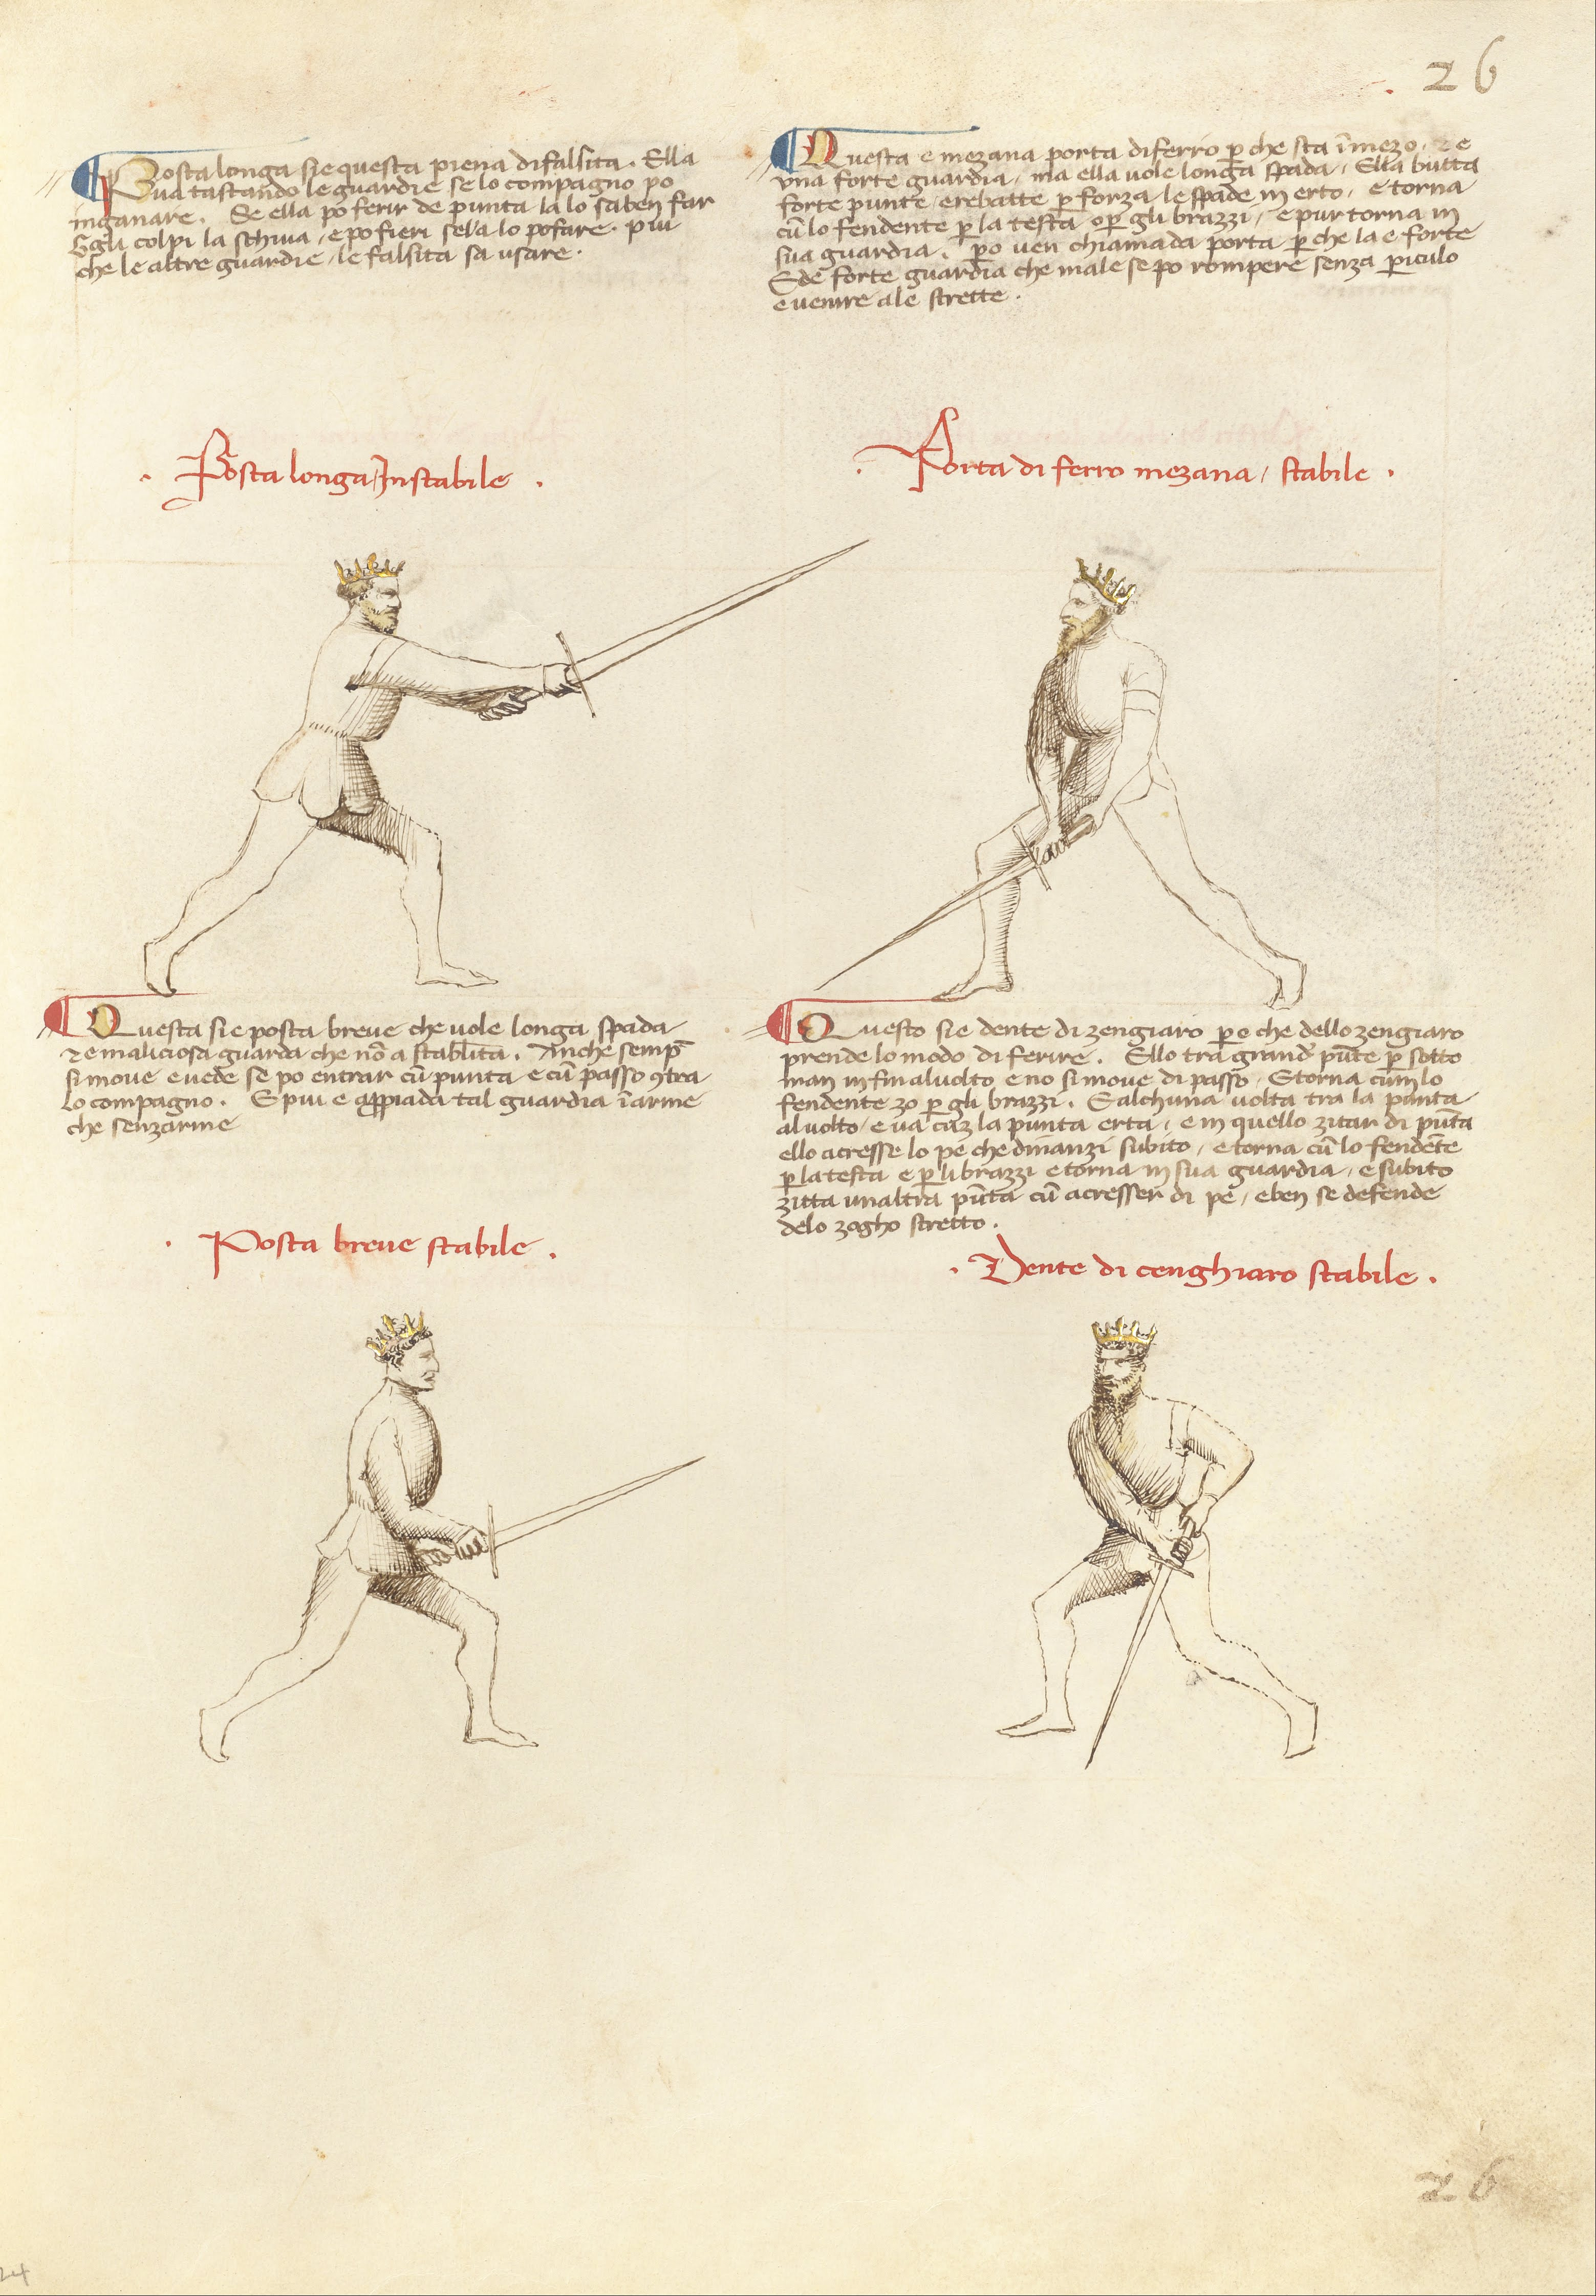 26
Posta longa si e questa piena di falsita. Ella
va tastando le guardie se lo compagno po
ingannare. Se ella po ferir de punta la lo sa ben far
E gli colpi la schiva, e po fieri sela lo po fare. piu
che le altre guardie, le falsita sa usare.
Questa e mezana porta di ferro p̄ che sta ī mezo, ⁊ e
una forte guardia, ma ella vole longa spada, Ella butta
forte punte, e rebatte p̄ forza le spade in erto, e torna
cū lo fendente p̄ la testa o p̄ gli brazzi, e pur torna in
sua guardia. p̄o ven chiamada porta p̄ che la e forte
E de forte guardia che male se po rompere senza p̄iculo
e venire ale strette.
. Posta longa / Instabile .
. Porta di ferro mezana, stabile .
Questa si e posta breve che vole longa spada
⁊ e maliciosa guarda che nō a stabilita. Anche semp̄
si move e vede se po entrar cū punta e cū passo ꝯtra
lo compagno. E piu e appiada tal guardia ī arme
che senz arme
. Posta breve stabile .
Questo si e dente di zengiaro p̄o che dello zengiaro
prende lo modo di ferire. Ello tra grand̄ pūte p̄ sotto
man in fin al volto, e no si move di passo, E torna cum lo
fendente zo p̄ gli brazzi. E alchuna volta tra la punta
al volto, e va cū la punta erta, e in quello zitar di pūta
ello acresse lo pe che dinanzi subito, e torna cū lo fendēte
p̄ la testa e p̄ li brazzi e torna in sua guardia, e subito
zitta unaltra pūta cū acresser di pe, e ben se defende
delo zogho stretto.
. Dente di cenghiaro stabile .
26
24